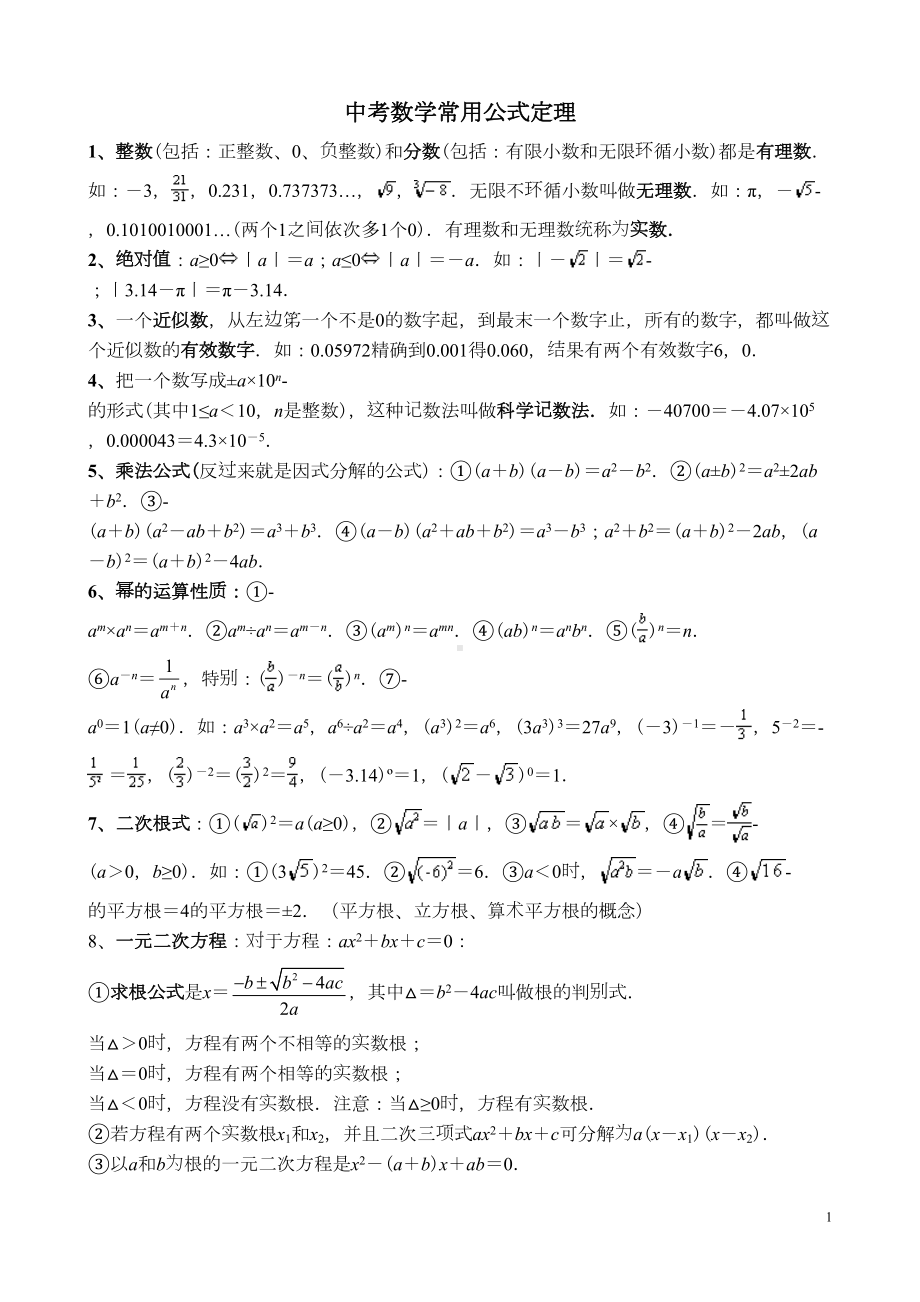 中考数学常用公式定理
1、整数(包括：正整数、0、负整数)和分数(包括：有限小数和无限环循小数)都是有理数．
如：－3，21/31，0.231，0.737373…，√9，∛－8．无限不环循小数叫做无理数．如：π，－√5-
，0.1010010001…(两个1之间依次多1个0)．有理数和无理数统称为实数．
2、绝对值：a≥0⇔丨a丨＝a；a≤0⇔丨a丨＝－a．如：丨－√2丨＝√2-
；丨3.14－π丨＝π－3.14．
3、一个近似数，从左边笫一个不是0的数字起，到最末一个数字止，所有的数字，都叫做这
个近似数的有效数字．如：0.05972精确到0.001得0.060，结果有两个有效数字6，0．
4、把一个数写成±a×10ⁿ-
的形式(其中1≤a＜10，n是整数)，这种记数法叫做科学记数法．如：－40700＝－4.07×10⁵
，0.000043＝4.3×10⁻⁵．
5、乘法公式(反过来就是因式分解的公式)：①(a＋b)(a－b)＝a²－b²．②(a±b)²＝a²±2ab
＋b²．③-
(a＋b)(a²－ab＋b²)＝a³＋b³．④(a－b)(a²＋ab＋b²)＝a³－b³；a²＋b²＝(a＋b)²－2ab，(a
－b)²＝(a＋b)²－4ab．
6、幂的运算性质：①-
aᵐ×aⁿ＝aᵐ⁺ⁿ．②aᵐ÷aⁿ＝aᵐ⁻ⁿ．③(aᵐ)ⁿ＝aᵐⁿ．④(ab)ⁿ＝aⁿbⁿ．⑤(b/a)ⁿ＝n．
⑥a⁻ⁿ＝1/aⁿ，特别：(b/a)⁻ⁿ＝(a/b)ⁿ．⑦-
a⁰＝1(a≠0)．如：a³×a²＝a⁵，a⁶÷a²＝a⁴，(a³)²＝a⁶，(3a³)³＝27a⁹，(－3)⁻¹＝－1/3，5⁻²＝-
1/5²＝1/25，(2/3)⁻²＝(3/2)²＝9/4，(－3.14)º＝1，(√2－√3)⁰＝1．
7、二次根式：①(√a)²＝a(a≥0)，②√a²＝丨a丨，③√ab＝√a×√b，④√(b/a)＝√b/√a-
(a＞0，b≥0)．如：①(3√5)²＝45．②√(-6)²＝6．③a＜0时，√a²b＝－a√b．④√16-
的平方根＝4的平方根＝±2．（平方根、立方根、算术平方根的概念）
8、一元二次方程：对于方程：ax²＋bx＋c＝0：
①求根公式是x＝(−b±√(b²−4ac))/2a，其中△＝b²－4ac叫做根的判别式．
当△＞0时，方程有两个不相等的实数根；
当△＝0时，方程有两个相等的实数根；
当△＜0时，方程没有实数根．注意：当△≥0时，方程有实数根．
②若方程有两个实数根x₁和x₂，并且二次三项式ax²＋bx＋c可分解为a(x－x₁)(x－x₂)．
③以a和b为根的一元二次方程是x²－(a＋b)x＋ab＝0．
1